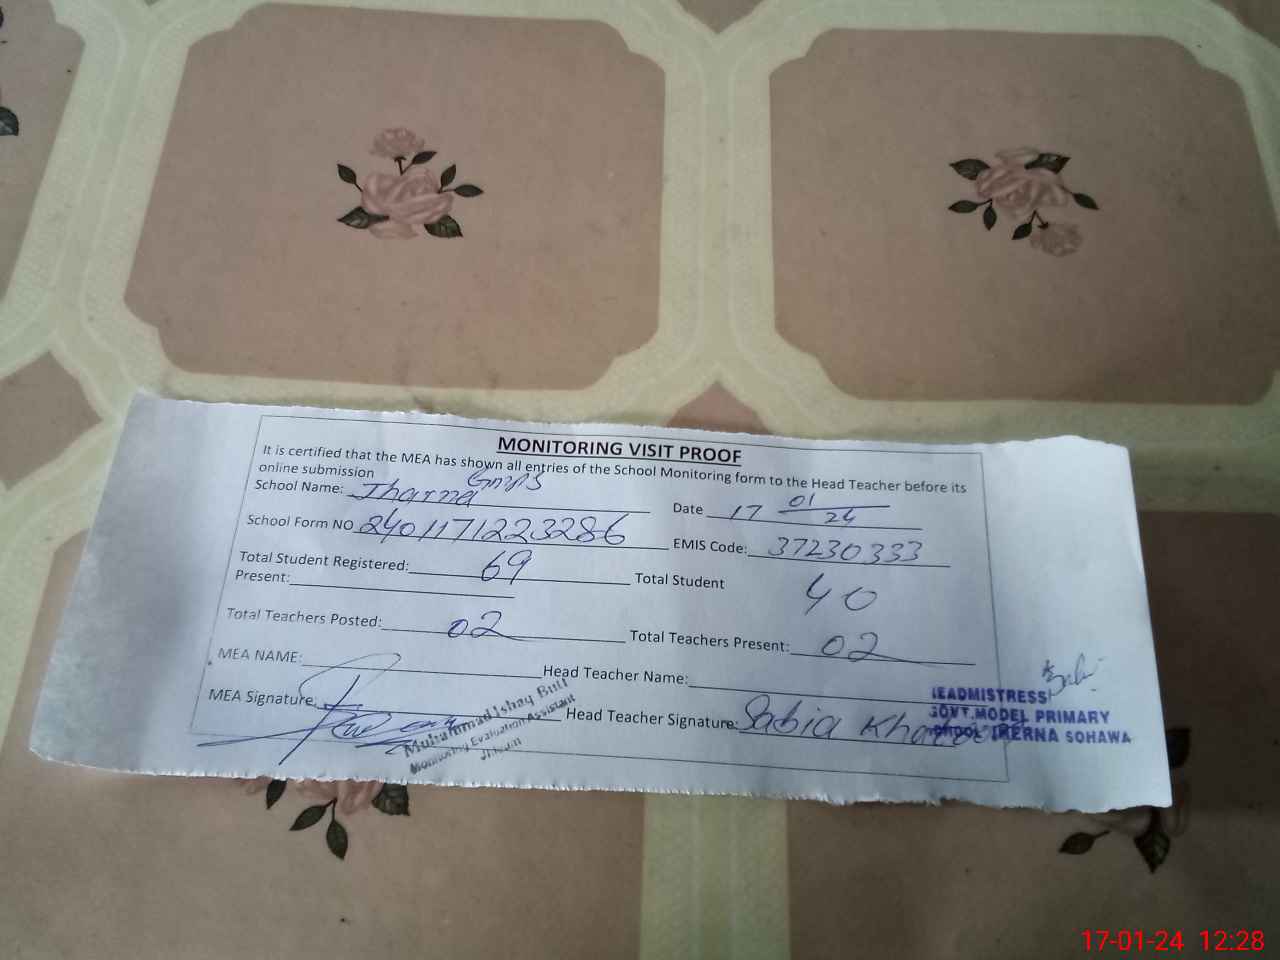 MONITORING VISIT PROOF
It is certified that the MEA has shown all entries of the School Monitoring form to the Head Teacher before its
online submission
School Name: Tharna GMPS Date 17 01/24
School Form NO 2401171223286 EMIS Code: 37230333
Total Student Registered: 69 Total Student 40
Present:
Total Teachers Posted: 02 Total Teachers Present: 02
MEA NAME: Head Teacher Name:
MEA Signature: Head Teacher Signature: Sabia Khatoon
Muhammad Ishaq Butt
Monitoring Evaluation Assistant
Jhelum
HEADMISTRESS
GOVT.MODEL PRIMARY
SOHAWA
17-01-24 12:28